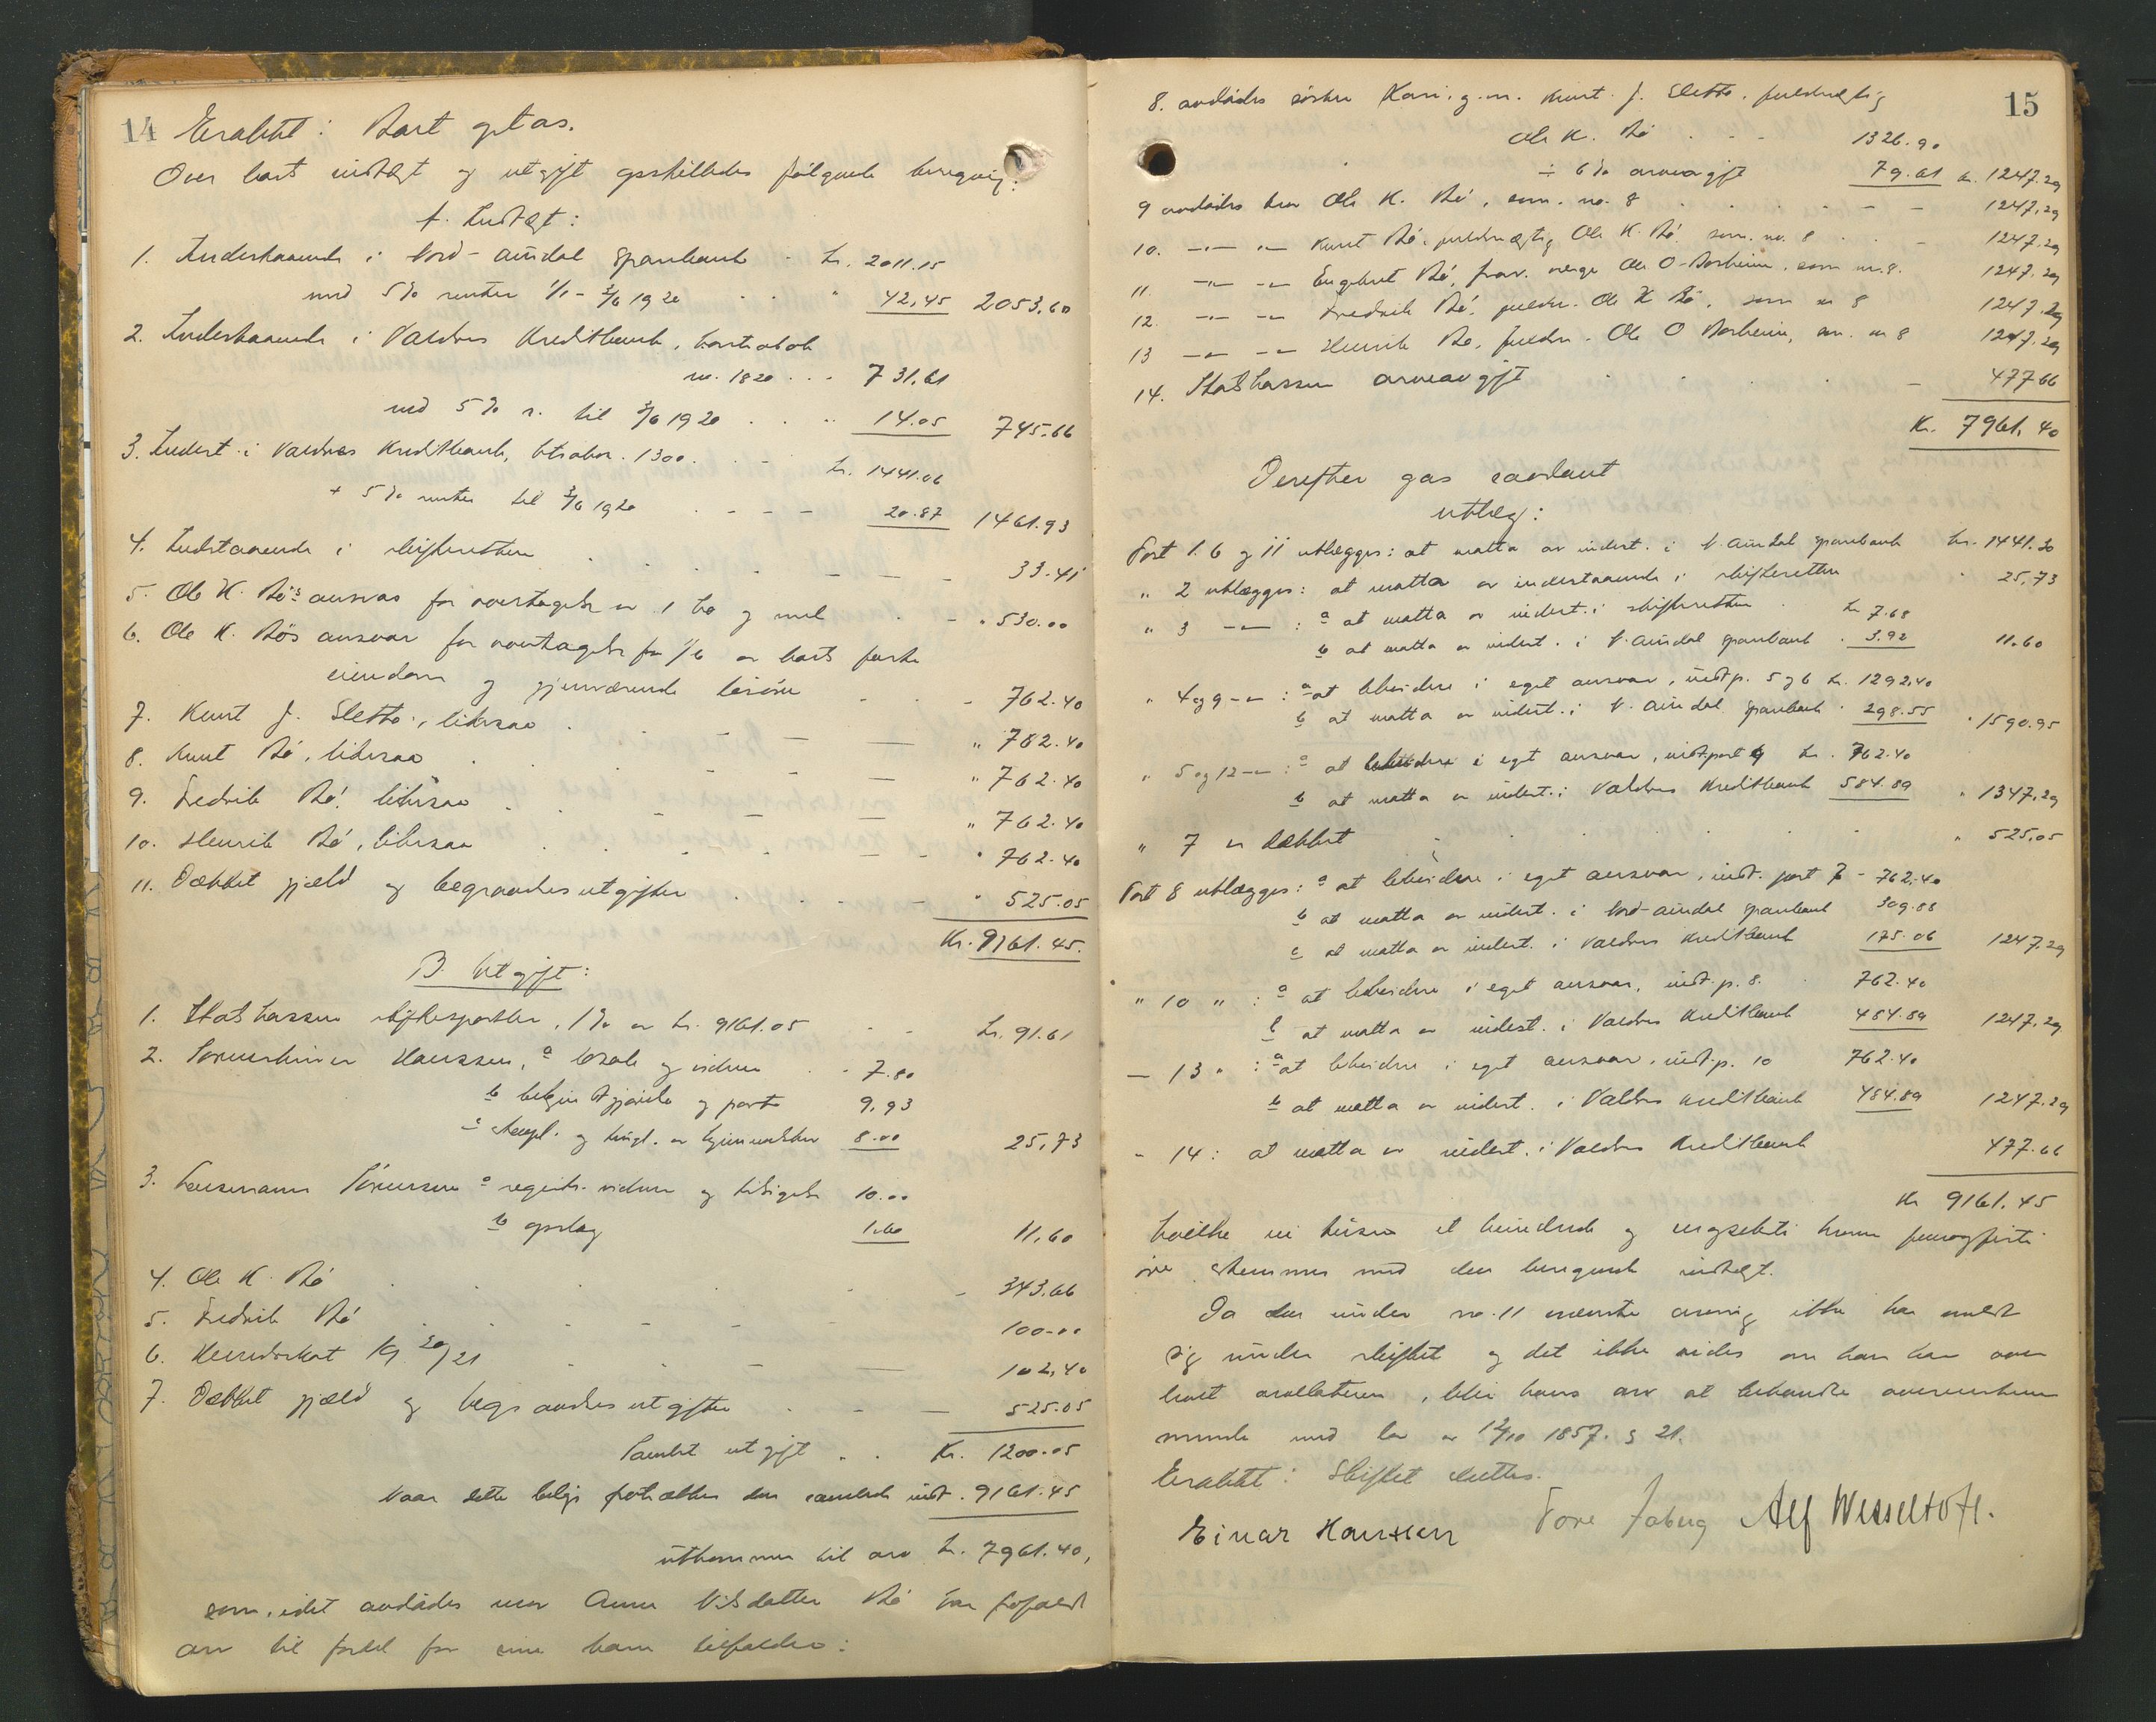 14
Eraktet: Boet gjøres.
Over boets indtægt og utgift opstilledes følgende beregning:
A. Indtægt:
1. Indestaaende i Nord-Aurdal Sparebank - kr. 2011.15
med 5% renter 1/1 - 3/6 1920 . . " 42,45 2053,60
2. Indestaaende i Valdres Kreditbank, kontrabok
no. 1820 . . . 731,61
med 5% r. til 3/6 1920 . . . 14.05 745.66
3. Indest. i Valdres Kreditbank, ktrabn. 1300. . - kr. 1441.06
+ 5% renter til 3/6 1920 - - - - 20.87 1461.93
4. Indestaaende i skifteretten - - - 33.41
5. Ole K. Bø's ansvar for overtagelse av 1 ko og mel - " 530.00
6. Ole K. Bøs ansvar for overtagelse for 1/6 av boets faste
eiendom og gjenværende løsøre - - - 762.40
7. Knut J. Sletto, likesaa . - - - " 762.40
8. Knut Bø, likesaa . - - - " 762.40
9. Fredrik Bø, likesaa . - - - " 762.40
10. Henrik Bø, likesaa . - - - " 762.40
11. Dækket gjæld og begravelsesutgifter . - - " 525.05
Kr. 9161.45.
B. Utgift:
1. Statskassen skiftesportler, 1% av kr. 9161.05 - - kr. 91.61
2. Sorenskriver Hanssen, a bksal og vidner . - 7.80
b bekjendtgjørelse og porto 9,93
c stempl. og tingl. av hjemmelsbrev 8.00 25,73
3. Lensmann a registr. vidner og 10.00
b opslag 1.60 11,60
4. Ole K. Bø . . . - 343.66
5. Fredrik Bø . - - - 100.00
6. Herredsskat 19 20/21 . - - 102,40
7. Dækket gjæld og begravelsesutgifter - - - 525.05
Samlet utgift . . Kr. 1200.05
Naar dette beløp fratrækkes den samlede indt. 9161.45
utkommer til arv kr. 7961.40,
som, idet avdødes mor Anne Nilsdatter Bø har frafaldt
arv til fordel for sine barn tilfalder:
15
8. avdødes søster Kari, g.m. Knut J. Sletto, fuldmægtig
Ole K. Bø . - - 1326.90
÷ 6% arveavgift 79.61 kr. 1247.29
9 avdødes bror Ole K. Bø, som no. 8 . . . . - - - 1247,29
10. -"- -"- Knut Bø, fuldmægtig Ole K. Bø som no. 8 . . - 1247.29
11. -"- -"- Engebret Bø, frav. verge Ole O. Borheim, som no. 8. 1247.29
12. -"- -"- Fredrik Bø, fuldm. Ole K. Bø, som no 8 1247.29
13 -"- -"- Henrik Bø, fuldm. Ole O Borheim, som no 8 1247.29
14. Statskassen arveavgift . . . . - 477.66
Kr. 7961,40
Derefter gas saadant
utlæg:
Post 1. 6 og 11 utlægges: at motta av indest. i N. Aurdal Sparebank kr. 1441.30
" 2 utlægges: at motta av indestaaende i skifteretten " 25,73
" 3 -"- : a at motta av indest. i skifteretten . kr 7.68
b at motta av indest. i N. Aurdal Sparebank . 3.92 11.60
" 4 og 9 -"- : a at beholde i eget ansvar, indt.p. 5 og 6 kr. 1292,40
b at motta av indest. i N. Aurdal Sparebank . 298.55 " 1590.95
" 5 og 12 -"- : a at beholde i eget ansvar, indt.post 9 kr. 762.40
b at motta av indest. i Valdres Kreditbank 584.89 " 1347,29
" 7 er dækket . . . . . " 525.05
Post 8 utlægges: a at beholde i eget ansvar, indt. post 7 - 762,40
b at motta av indest. i Nord-Aurdal Sparebank 309.83
c at motta av indest. i Valdres Kreditbank 175.06 1247.29
" 10 " : a at beholde i eget ansvar, indt.p. 8. . 762.40
b at motta av indest. i Valdres Kreditbank 484.89 1247,29
- 13 " : a at beholde i eget ansvar, indt.p. 10 762.40
b at motta av indest. i Valdres Kreditbank 484.89 1247.29
" 14: at motta av indest. i Valdres Kreditbank 477.66
Kr 9161.45
hvilke ni tusen et hundrede og kroner femogførti
øre stemmer med den beregnede indtægt.
Da den under no. 11 nævnte arving ikke har meldt
sig under skiftet og det ikke vides om han har over
levet arvelateren, blir hans arv at behandle overensstem
mende med lov av 12/10 1857. § 21.
Eraktet: Skiftet sluttes.
Einar Hanssen Tore Foberg Alf Wesseltoft.